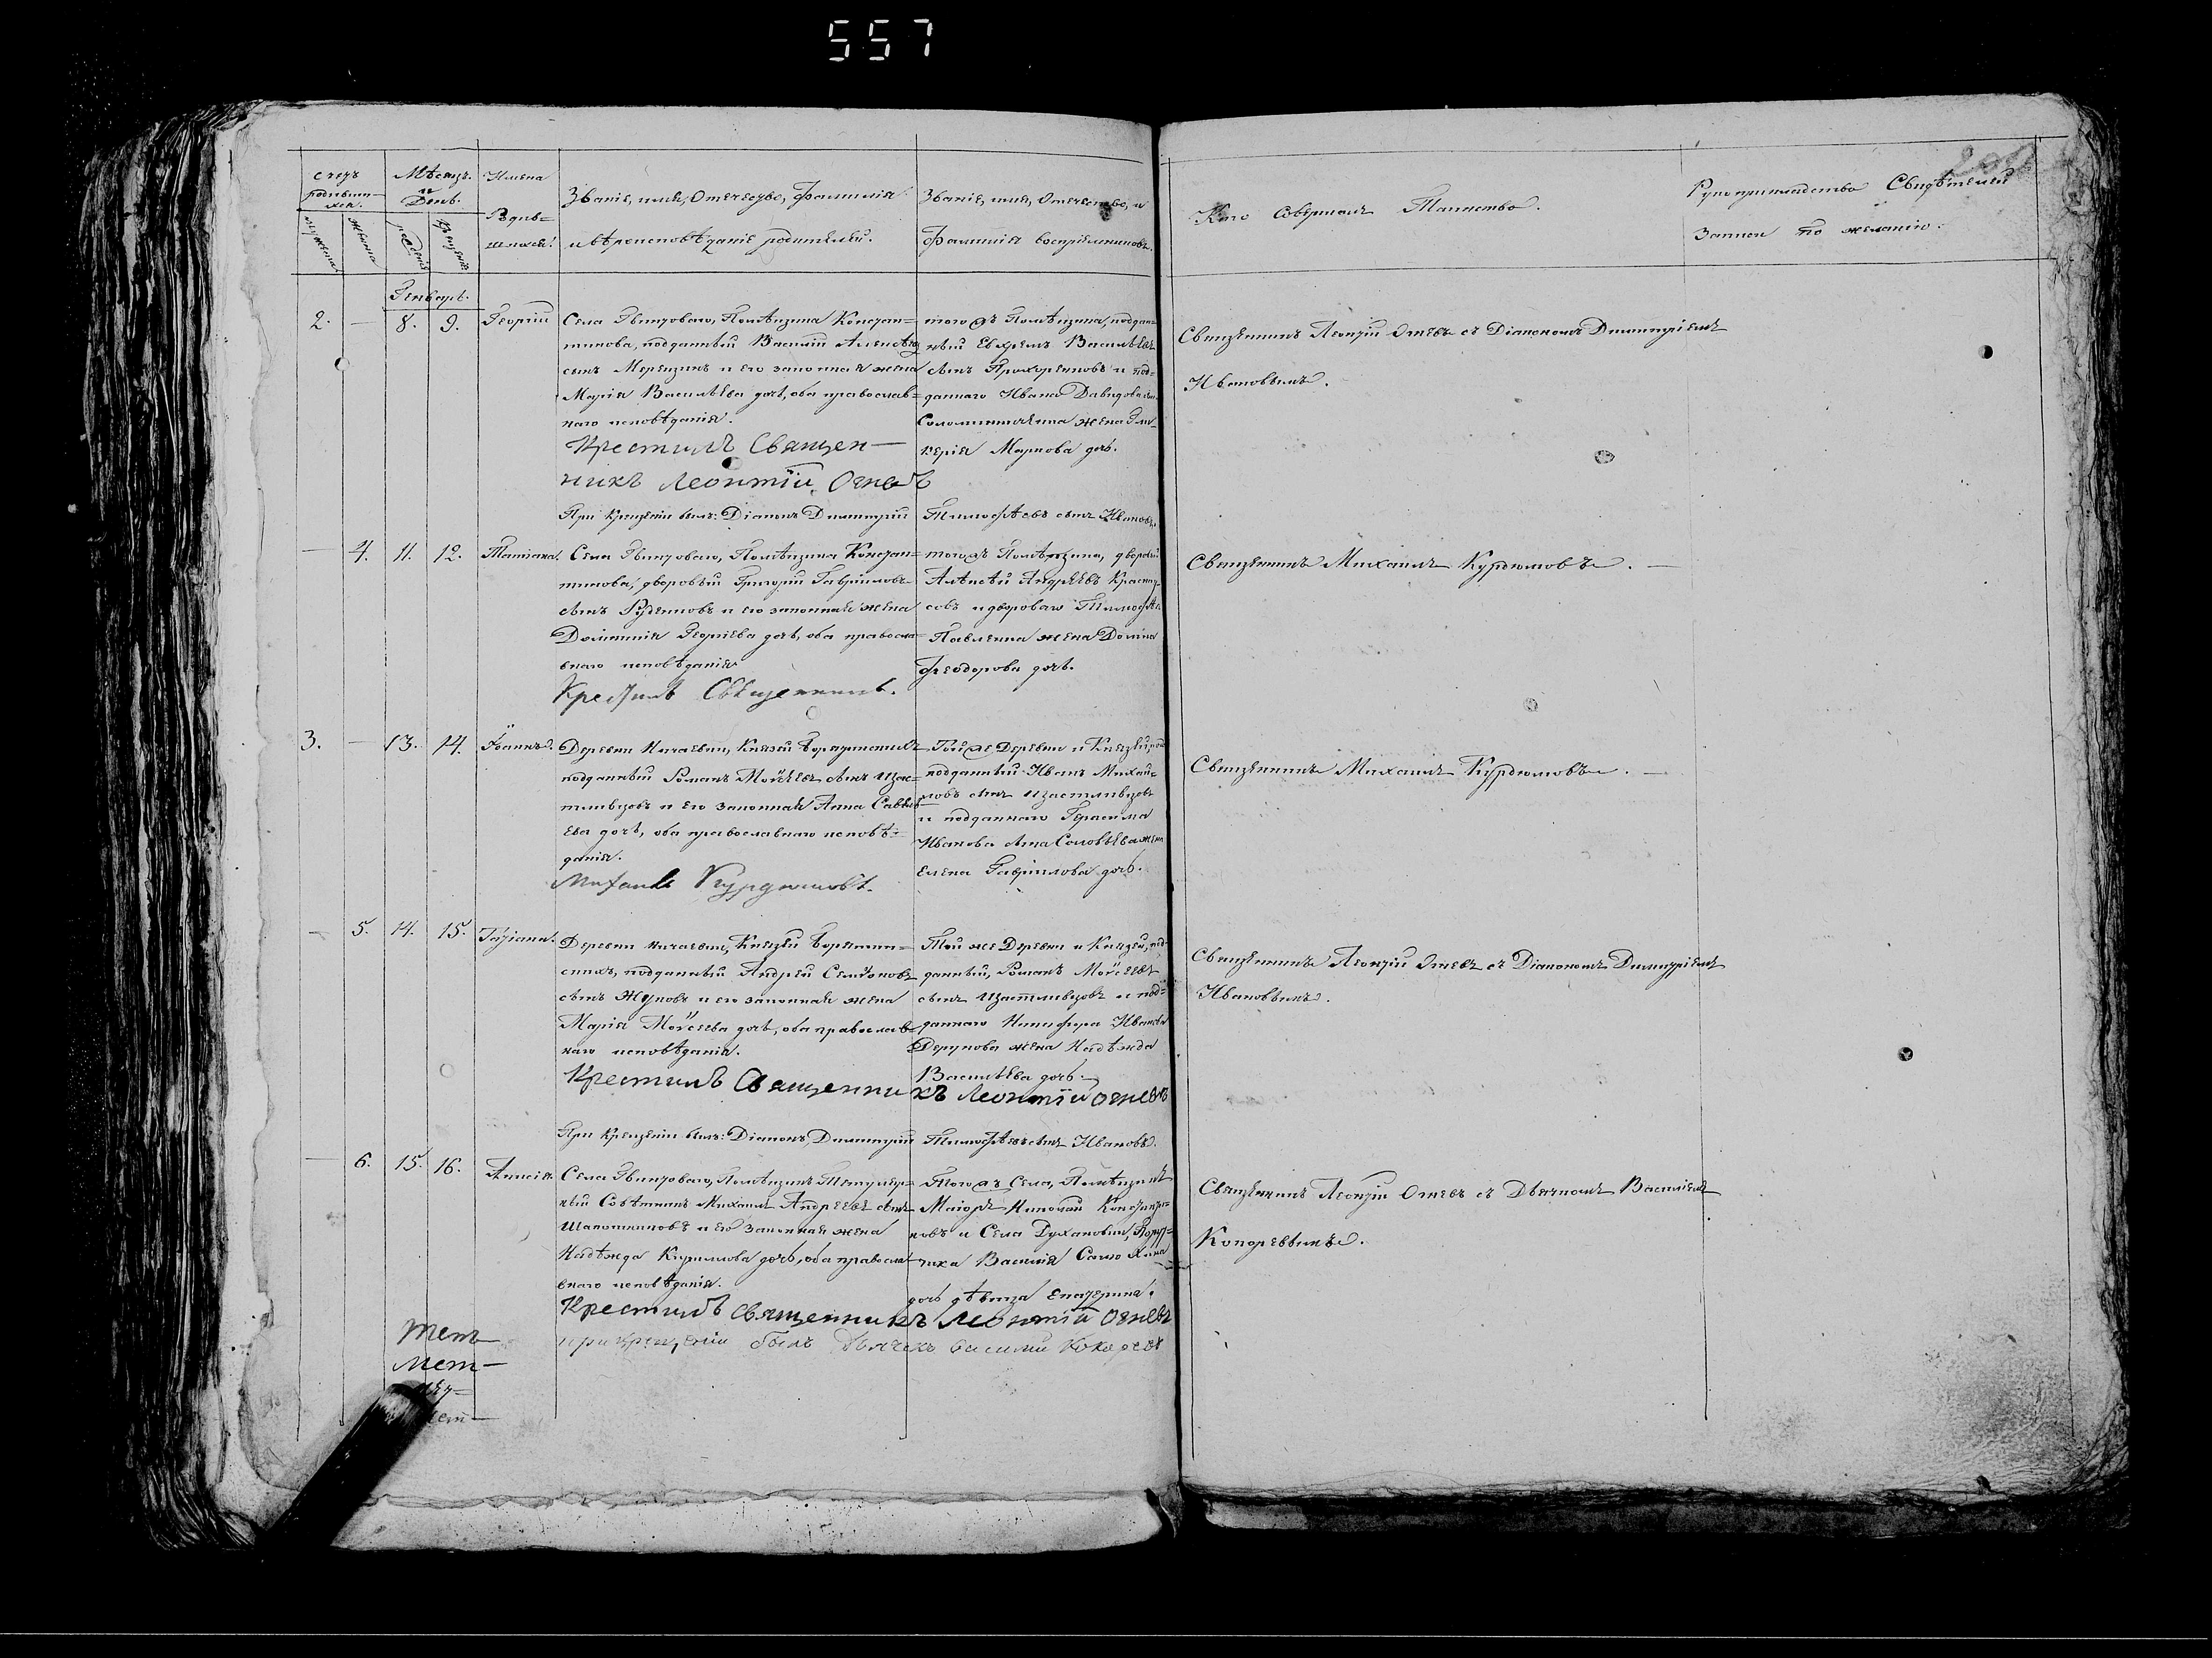 557
счетъ родившихся.
мужеска
женска
Мѣсяцъ и День.
рожденія
крещенія
Имена Родив=
шихся.
Званіе, имя, Отечество, Фамилія
и вѣроисповѣданіе родителей.
Званіе, имя, Отечество, и
Фамилія воспріемниковъ.
Кто совершалъ Таинство.
Рукоприкладство Свидѣтелей
записи по желанію.
Генварь.
2. — 8. 9. Георгій
Села Гвинтоваго, Помѣщика Констан=
тинова, подданный Василій Алексѣевъ
сынъ Мерензинъ и его законная жена
Марія Васильева дочь, оба православ=
наго исповѣданія.
Крестилъ Священ—
никъ Леонтій Огневъ
При крещеніи былъ: Діаконъ Димитрій
тогожъ Помѣщика, поддан=
ный Евфремъ Васильевъ
сынъ Прохоренковъ и под=
даннаго Ивана Давидова
жена Гли=
керія Маркова дочь.
Тимофѣевъ сынъ Ивановъ.
Священникъ Леонтій Огневъ съ Діакономъ Димитріемъ
Ивановымъ.
— 4. 11. 12. Татіана.
Села Гвинтоваго, Помѣщика Констан=
тинова, дворовый Григорій Гавриловъ
сынъ Руденковъ и его законная жена
Домникія Георгіева дочь, оба правосла=
внаго исповѣданія
Крестилъ Священникъ.
тогожъ Помѣщика, дворовый
Алексѣй Андреевъ
и двороваго Тимофѣя
Павленка жена Домна
Феодорова дочь.
Священникъ Михаилъ Курдюмовъ. —
3. — 13. 14. Іоаннъ.
Деревни Ничаевки, Князей Борятинскихъ
подданный Романъ Мойсеевъ сынъ Щас=
тливцовъ и его законная Анна Савель
ева дочь, оба православнаго исповѣ=
данія.
Михаилъ Курдюмовъ.
Той же Деревни и Князей,
подданный Иванъ Михай=
ловъ сынъ Щастливцовъ
и подданнаго Герасима
Иванова сына Соловьева жена
Елена Гаврилова дочь.
Священникъ Михаилъ Курдюмовъ. —
— 5. 14. 15. Татіана.
Деревни Ничаевки, Князей Борятин=
скихъ, подданный Андрей Семіоновъ
сынъ Жуковъ и его законная жена
Марія Мойсеева дочь, оба православ=
наго исповѣданія.
Крестилъ Священникъ Леонтій Огневъ
При крещеніи былъ: Діаконъ Димитрій
Той же Деревни и Князей, под=
данный, Романъ Мойсеевъ
сынъ Щастливцовъ и под=
даннаго Никифора Иванова
Дерунова жена Надѣжда
Васильева дочь.
Тимофѣевъ сынъ Ивановъ.
Священникъ Леонтій Огневъ съ Діакономъ Димитріемъ
Ивановымъ.
— 6. 15. 16. Анисія.
Села Гвинтоваго, Помѣщикъ Титуляр=
ный Совѣтникъ Михаилъ Андреевъ сынъ
Шапошниковъ и его законная жена
Надѣжда Кирилова дочь, оба правосла=
внаго исповѣданія.
Крестилъ священникъ Леонтій Огневъ
при крещеніи былъ Дьячекъ Василій Кокоревъ
Тогожъ Села, Помѣщикъ
Маіоръ Николай Константи=
новъ и Села Духановки, Пору=
чика Василія
дочь дѣвица Екатерина.
Священникъ Леонтій Огневъ съ Дьячкомъ Василіемъ
Кокоревымъ.